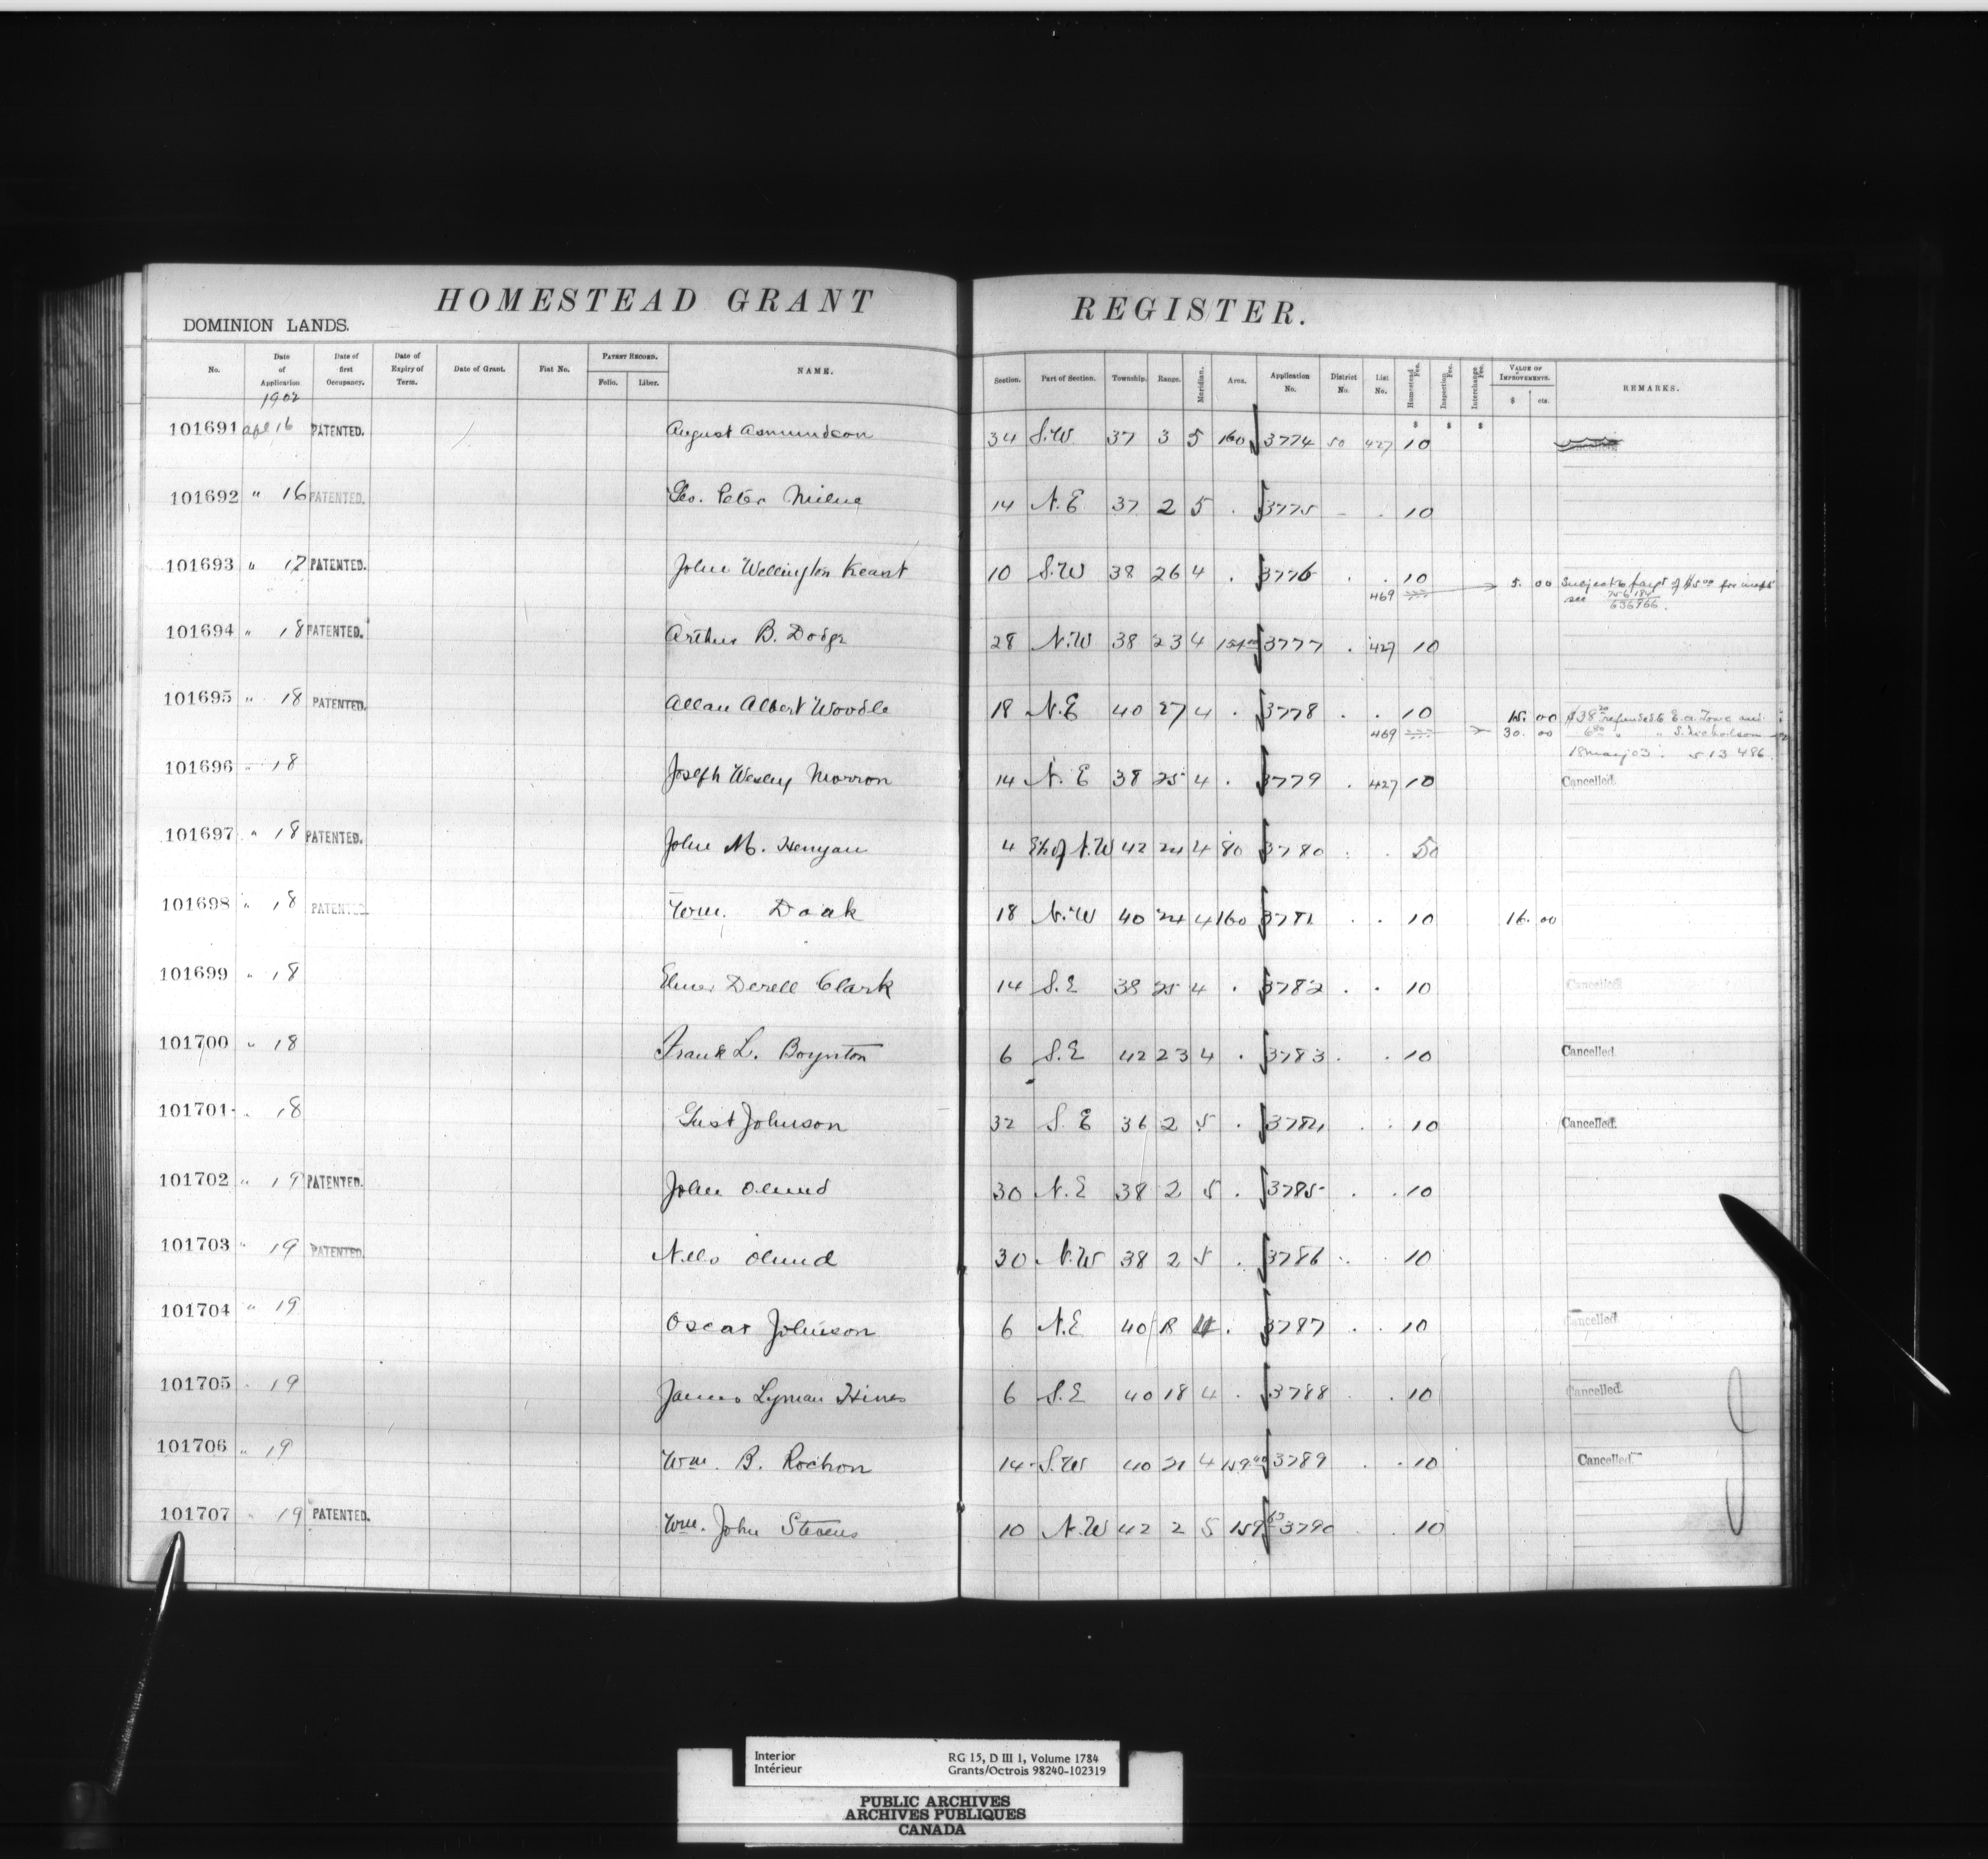 HOMESTEAD GRANT REGISTER.
DOMINION LANDS.
No. Date of Application Date of first Occupancy. Date of Expiry of Term. Date of Grant. Fiat No. PATENT RECORD. Folio. Liber. NAME. Section. Part of Section. Township. Range. Meridian. Area. Application No. District No. List No. Homestead Fee. Inspection Fee. Interchange Fee. VALUE OF IMPROVEMENTS. $ cts. REMARKS.
1902 $ $ $
101691 apl 16 PATENTED. August Asmundson 34 S.W 37 3 5 160 3774 50 427 10
101692 " 16 PATENTED. Geo. Peter Milne 14 N.E 37 2 5 . 3775 - . 10
101693 " 17 PATENTED. John Wellington Keast 10 S.W 38 26 4 . 3776 . . 10
469 5. 00 Subject to payt of $5.00 for
see 756184
636966.
101694 " 18 PATENTED. Arthur B. Dodge 28 N.W 38 23 4 3777 . 427 10
101695 " 18 PATENTED. Allan Albert Woodle 18 N.E 40 27 4 . 3778 . . 10 15. 00 $38 refunded to E.A. and
469 30. 00 6 " " S. Nicholson
18 May 03. 513486
101696 " 18 Joseph Wesley Morron 14 N.E 38 25 4 . 3779 . 427 10 Cancelled.
101697 " 18 PATENTED. John M. Henyan 4 E½ of N.W 42 24 4 80 3780 . . 50
101698 " 18 PATENTED Wm. Doak 18 N.W 40 24 4 160 3781 . . 10 16. 00
101699 " 18 Elmer Derell Clark 14 S.E 38 25 4 . 3782 . . 10 Cancelled
101700 " 18 Frank L. Boynton 6 S.E 42 23 4 . 3783 . . 10 Cancelled
101701 " 18 Gust Johnson 32 S.E 36 2 5 . 3784 . . 10 Cancelled.
101702 " 19 PATENTED. John Olund 30 N.E 38 2 5 . 3785 . . 10
101703 " 19 PATENTED. Nels Olund 30 N.W 38 2 5 . 3786 . 10
101704 " 19 Oscar Johnson 6 N.E 40 4 . 3787 . . 10 Cancelled
101705 " 19 James Lyman Hines 6 S.E 40 18 4 . 3788 . . 10 Cancelled.
101706 " 19 Wm. B. Rochon 14 S.W 40 21 4 159 3789 . . 10 Cancelled.
101707 " 19 PATENTED. Wm. John Stevens 10 N.W 42 2 5 159 63 3790 . 10
Interior
Intérieur
RG 15, D III 1, Volume 1784
Grants/Octrois 98240-102319
PUBLIC ARCHIVES
ARCHIVES PUBLIQUES
CANADA